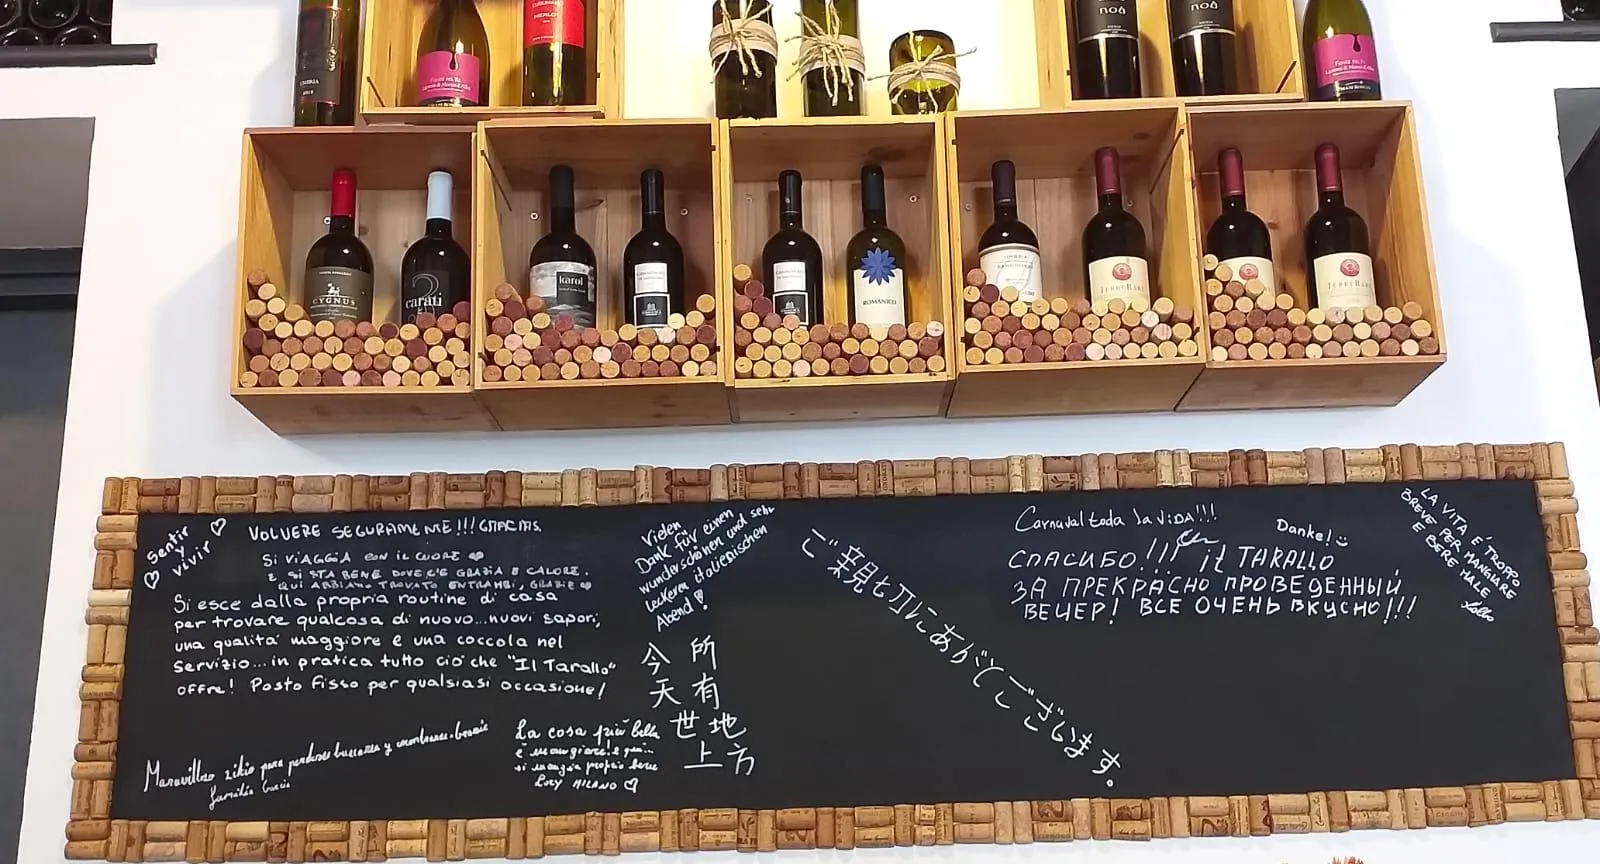 MERLOT
noà
noà
UMBRIA
CYGNUS
2
carati
karol
ROMANICO
TERRERARE
TERRERARE
Sentir
y
vivir
VOLVERE SEGURAMENTE!!! GRACIAS.
SI VIAGGIA CON IL CUORE
E SI STA BENE DOVE C'E GRAZIA E CALORE.
QUI ABBIAMO TROVATO ENTRAMBI, GRAZIE
Si esce dalla propria routine di casa
per trovare qualcosa di nuovo...nuovi sapori,
una qualità maggiore e una coccola nel
servizio...in pratica tutto ciò che "Il Tarallo"
offre! Posto fisso per qualsiasi occasione!
Maravilloso sitio para perderse y
familia García
La cosa più bella
è mangiare! e qui...
si mangia proprio bene
Lucy MILANO
Vielen
Dank für einen
wunderschönen und sehr
leckeren italienischen
Abend!
今 所
天 有
世 地
上 方
ご親切にありがとうございます。
Carnaval toda la vida!!!
Danke!
СПАСИБО!!! il TARALLO
ЗА ПРЕКРАСНО ПРОВЕДЕННЫЙ
ВЕЧЕР! ВСЕ ОЧЕНЬ ВКУСНО!!!
LA VITA È TROPPO
BREVE PER MANGIARE
E BERE MALE